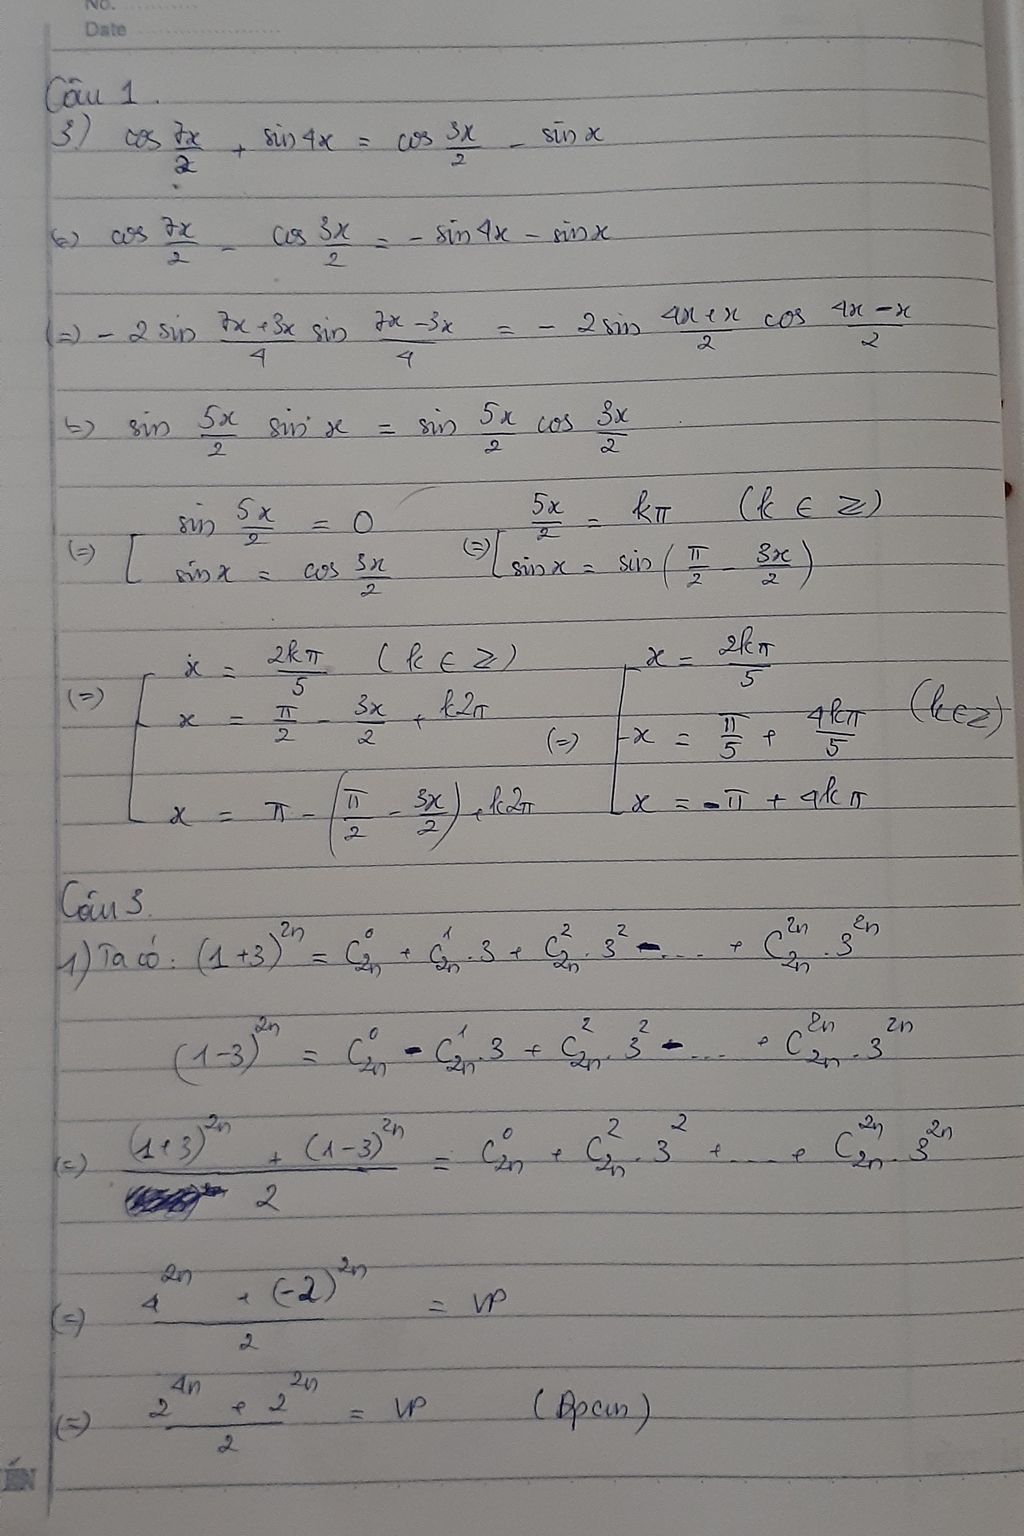 No.
Date
Câu 1.
3) cos 7x/2 + sin 4x = cos 3x/2 - sin x
(=) cos 7x/2 - cos 3x/2 = - sin 4x - sin x
(=) - 2 sin (7x+3x)/4 sin (7x-3x)/4 = - 2 sin (4x+x)/2 cos (4x-x)/2
(=) sin 5x/2 sin x = sin 5x/2 cos 3x/2
(=) [ sin 5x/2 = 0 (=) [ 5x/2 = kπ (k ∈ Z)
sin x = cos 3x/2 sin x = sin (π/2 - 3x/2)
(=) [ x = 2kπ/5 (k ∈ Z) (=) [ x = 2kπ/5
x = π/2 - 3x/2 + k2π x = π/5 + 4kπ/5 (k∈Z)
x = π - (π/2 - 3x/2) + k2π x = -π + 4kπ
Câu 3.
1) Ta có: (1+3)^2n = C_2n^0 + C_2n^1 . 3 + C_2n^2 . 3^2 - .... + C_2n^2n . 3^2n
(1-3)^2n = C_2n^0 - C_2n^1 . 3 + C_2n^2 . 3^2 - .... + C_2n^2n . 3^2n
(=) ((1+3)^2n + (1-3)^2n)/2 = C_2n^0 + C_2n^2 . 3^2 + .... + C_2n^2n . 3^2n
(=) (4^2n + (-2)^2n)/2 = VP
(=) (2^4n + 2^2n)/2 = VP (Đpcm)